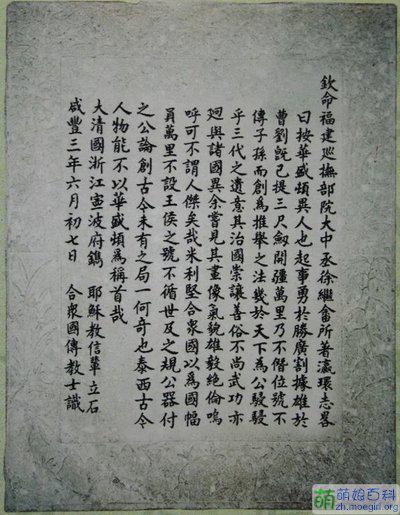 欽命福建巡撫部院大中丞徐繼畬所著瀛環志畧
曰按華盛頓異人也起事勇於勝廣割據雄於
曹劉旣已提三尺劍開疆萬里乃不僭位號不
傳子孫而創為推舉之法幾於天下為公駸駸
乎三代之遺意其治國崇讓善俗不尚武功亦
廻與諸國異余嘗見其畫像氣貌雄毅絶倫嗚
呼可不謂人傑矣哉米利堅合衆國以爲國幅
員萬里不設王侯之號不循世及之規公器付
之公論創古今未有之局一何奇也泰西古今
人物能不以華盛頓爲稱首哉
大清國浙江寧波府鐫 耶穌教信輩立石
咸豐三年六月初七日 合衆國傳教士識
萌 萌娘百科
zh.moegirl.org